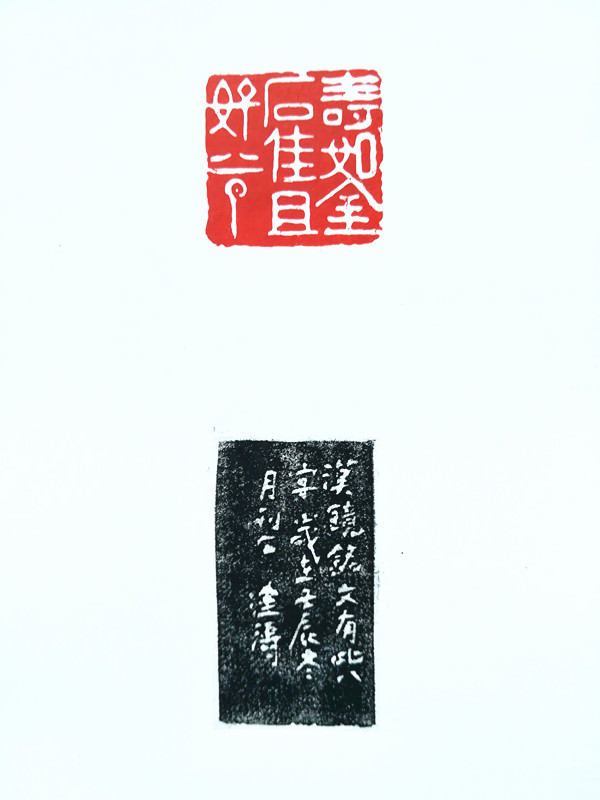 壽如金
石佳且
好兮
漢鏡銘文有此八
字歲在壬辰冬
月刊石 濤